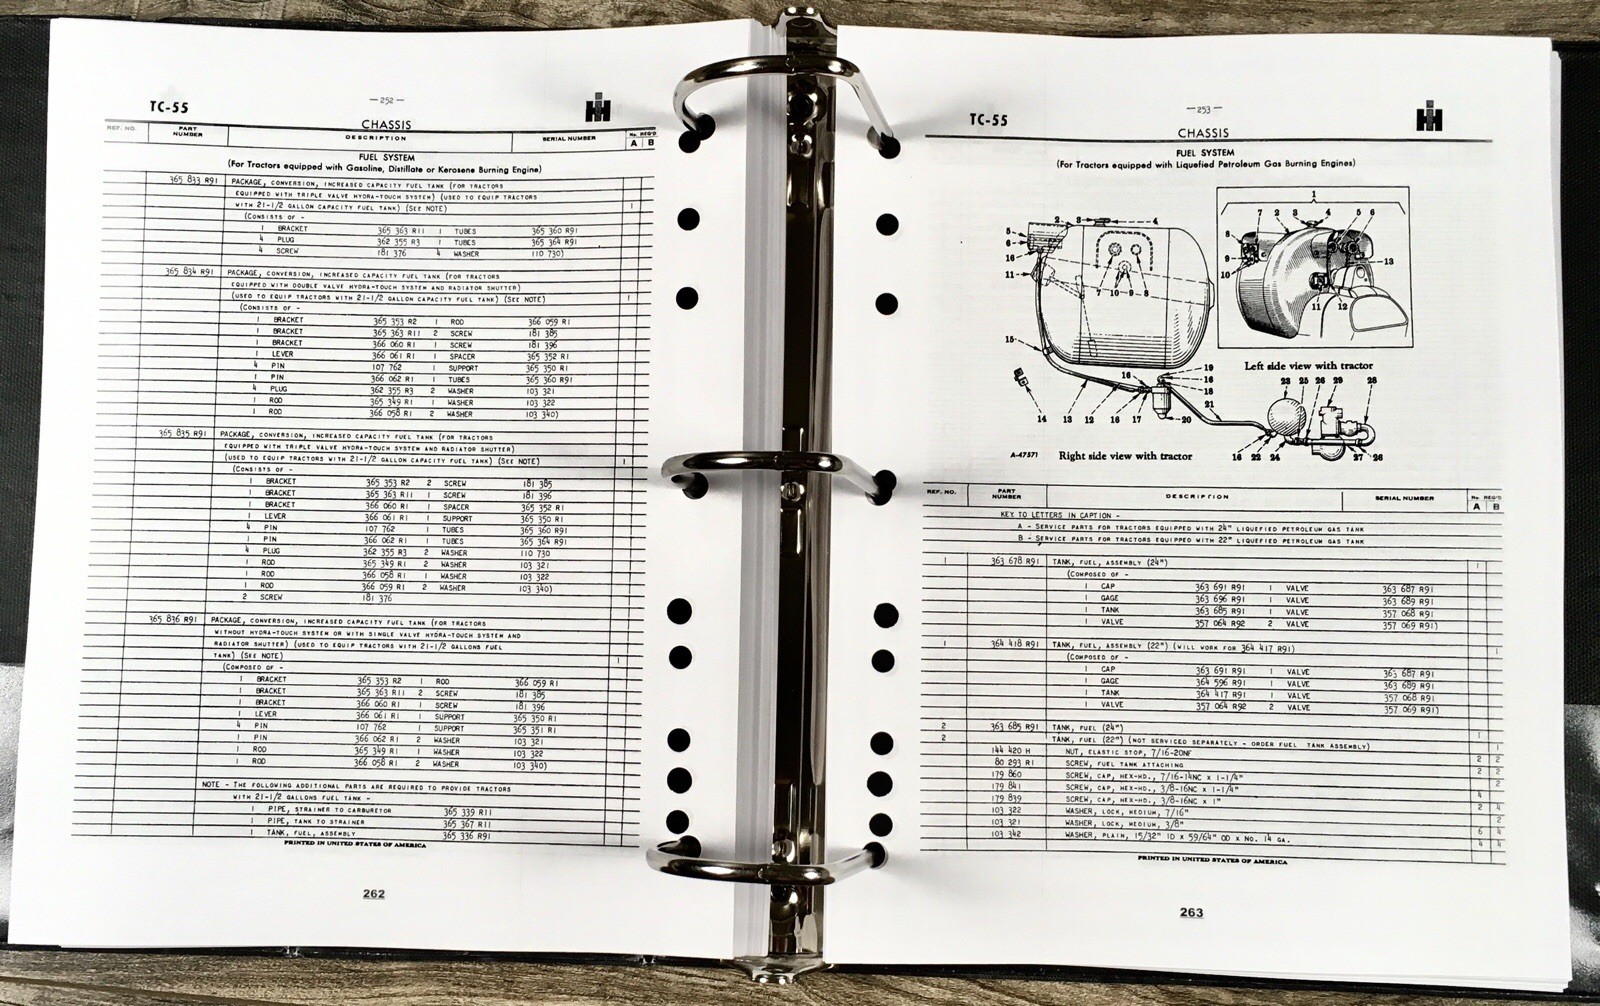 TC-55
—252—
CHASSIS
REF. NO. PART NUMBER DESCRIPTION SERIAL NUMBER No. REQ'D A B
FUEL SYSTEM
(For Tractors equipped with Gasoline, Distillate or Kerosene Burning Engine)
365 833 R91 PACKAGE, CONVERSION, INCREASED CAPACITY FUEL TANK (FOR TRACTORS
EQUIPPED WITH TRIPLE VALVE HYDRA-TOUCH SYSTEM) (USED TO EQUIP TRACTORS
WITH 21-1/2 GALLON CAPACITY FUEL TANK) (SEE NOTE) 1
(CONSISTS OF -
1 BRACKET 365 363 R11 1 TUBES 365 360 R91
4 PLUG 362 355 R3 1 TUBES 365 364 R91
4 SCREW 181 376 4 WASHER 110 730)
365 834 R91 PACKAGE, CONVERSION, INCREASED CAPACITY FUEL TANK (FOR TRACTORS
EQUIPPED WITH DOUBLE VALVE HYDRA-TOUCH SYSTEM AND RADIATOR SHUTTER)
(USED TO EQUIP TRACTORS WITH 21-1/2 GALLON CAPACITY FUEL TANK) (SEE NOTE) 1
(CONSISTS OF -
1 BRACKET 365 353 R2 1 ROD 366 059 R1
1 BRACKET 365 363 R11 2 SCREW 181 385
1 BRACKET 366 060 R1 1 SCREW 181 396
1 LEVER 366 061 R1 1 SPACER 365 352 R1
4 PIN 107 762 1 SUPPORT 365 350 R1
1 PIN 366 062 R1 1 TUBES 365 360 R91
4 PLUG 362 355 R3 2 WASHER 103 321
1 ROD 365 349 R1 1 WASHER 103 322
1 ROD 366 058 R1 2 WASHER 103 340)
365 835 R91 PACKAGE, CONVERSION, INCREASED CAPACITY FUEL TANK (FOR TRACTORS
EQUIPPED WITH TRIPLE VALVE HYDRA-TOUCH SYSTEM AND RADIATOR SHUTTER)
(USED TO EQUIP TRACTORS WITH 21-1/2 GALLON CAPACITY FUEL TANK) (SEE NOTE) 1
(CONSISTS OF -
1 BRACKET 365 353 R2 2 SCREW 181 385
1 BRACKET 365 363 R11 1 SCREW 181 396
1 BRACKET 366 060 R1 1 SPACER 365 352 R1
1 LEVER 366 061 R1 1 SUPPORT 365 350 R1
4 PIN 107 762 1 TUBES 365 360 R91
1 PIN 366 062 R1 1 TUBES 365 364 R91
4 PLUG 362 355 R3 2 WASHER 110 730
1 ROD 365 349 R1 2 WASHER 103 321
1 ROD 366 058 R1 1 WASHER 103 322
1 ROD 366 059 R1 2 WASHER 103 340)
2 SCREW 181 376
365 836 R91 PACKAGE, CONVERSION, INCREASED CAPACITY FUEL TANK (FOR TRACTORS
WITHOUT HYDRA-TOUCH SYSTEM OR WITH SINGLE VALVE HYDRA-TOUCH SYSTEM AND
RADIATOR SHUTTER) (USED TO EQUIP TRACTORS WITH 21-1/2 GALLONS FUEL
TANK) (SEE NOTE) 1
(COMPOSED OF -
1 BRACKET 365 353 R2 1 ROD 366 059 R1
1 BRACKET 365 363 R11 2 SCREW 181 385
1 BRACKET 366 060 R1 1 SCREW 181 396
1 LEVER 366 061 R1 1 SUPPORT 365 350 R1
4 PIN 107 762 1 SUPPORT 365 351 R1
1 PIN 366 062 R1 2 WASHER 103 321
1 ROD 365 349 R1 1 WASHER 103 322
1 ROD 366 058 R1 2 WASHER 103 340)
NOTE - THE FOLLOWING ADDITIONAL PARTS ARE REQUIRED TO PROVIDE TRACTORS
WITH 21-1/2 GALLONS FUEL TANK -
1 PIPE, STRAINER TO CARBURETOR 365 339 R11
1 PIPE, TANK TO STRAINER 365 367 R11
1 TANK, FUEL, ASSEMBLY 365 336 R91
PRINTED IN UNITED STATES OF AMERICA
262
TC-55
—253—
CHASSIS
FUEL SYSTEM
(For Tractors equipped with Liquefied Petroleum Gas Burning Engines)
1
2 3 4
7 2 3 4 5 6
5
6
16
11
8
9
10
13
11 12
7 10 9 8
15
14
13 12 16 17
16
19
16
18
20
21
Left side view with tractor
23 25 26 29 28
16 22 24 27 26
A-47571
Right side view with tractor
REF. NO. PART NUMBER DESCRIPTION SERIAL NUMBER No. REQ'D A B
KEY TO LETTERS IN CAPTION -
A - SERVICE PARTS FOR TRACTORS EQUIPPED WITH 24" LIQUEFIED PETROLEUM GAS TANK
B - SERVICE PARTS FOR TRACTORS EQUIPPED WITH 22" LIQUEFIED PETROLEUM GAS TANK
1 363 678 R91 TANK, FUEL, ASSEMBLY (24") 1
(COMPOSED OF -
1 CAP 363 691 R91 1 VALVE 363 687 R91
1 GAGE 363 696 R91 1 VALVE 363 689 R91
1 TANK 363 685 R91 1 VALVE 357 068 R91
1 VALVE 357 064 R92 2 VALVE 357 069 R91)
1 364 418 R91 TANK, FUEL, ASSEMBLY (22") (WILL WORK FOR 364 417 R91) 1
(COMPOSED OF -
1 CAP 363 691 R91 1 VALVE 363 687 R91
1 GAGE 364 596 R91 1 VALVE 363 689 R91
1 TANK 364 417 R91 1 VALVE 357 068 R91
1 VALVE 357 064 R92 2 VALVE 357 069 R91)
2 363 685 R91 TANK, FUEL (24") 1
2 TANK, FUEL (22") (NOT SERVICED SEPARATELY - ORDER FUEL TANK ASSEMBLY) 1
144 420 H NUT, ELASTIC STOP, 7/16-20NF 2 2
80 293 R1 SCREW, FUEL TANK ATTACHING 2 2
179 860 SCREW, CAP, HEX-HD., 7/16-14NC x 1-1/4" 2
179 841 SCREW, CAP, HEX-HD., 3/8-16NC x 1-1/4" 4
179 839 SCREW, CAP, HEX-HD., 3/8-16NC x 1" 2 4
103 322 WASHER, LOCK, MEDIUM, 7/16" 2
103 321 WASHER, LOCK, MEDIUM, 3/8" 6 4
103 342 WASHER, PLAIN, 15/32" ID x 59/64" OD x NO. 14 GA. 4 4
PRINTED IN UNITED STATES OF AMERICA
263